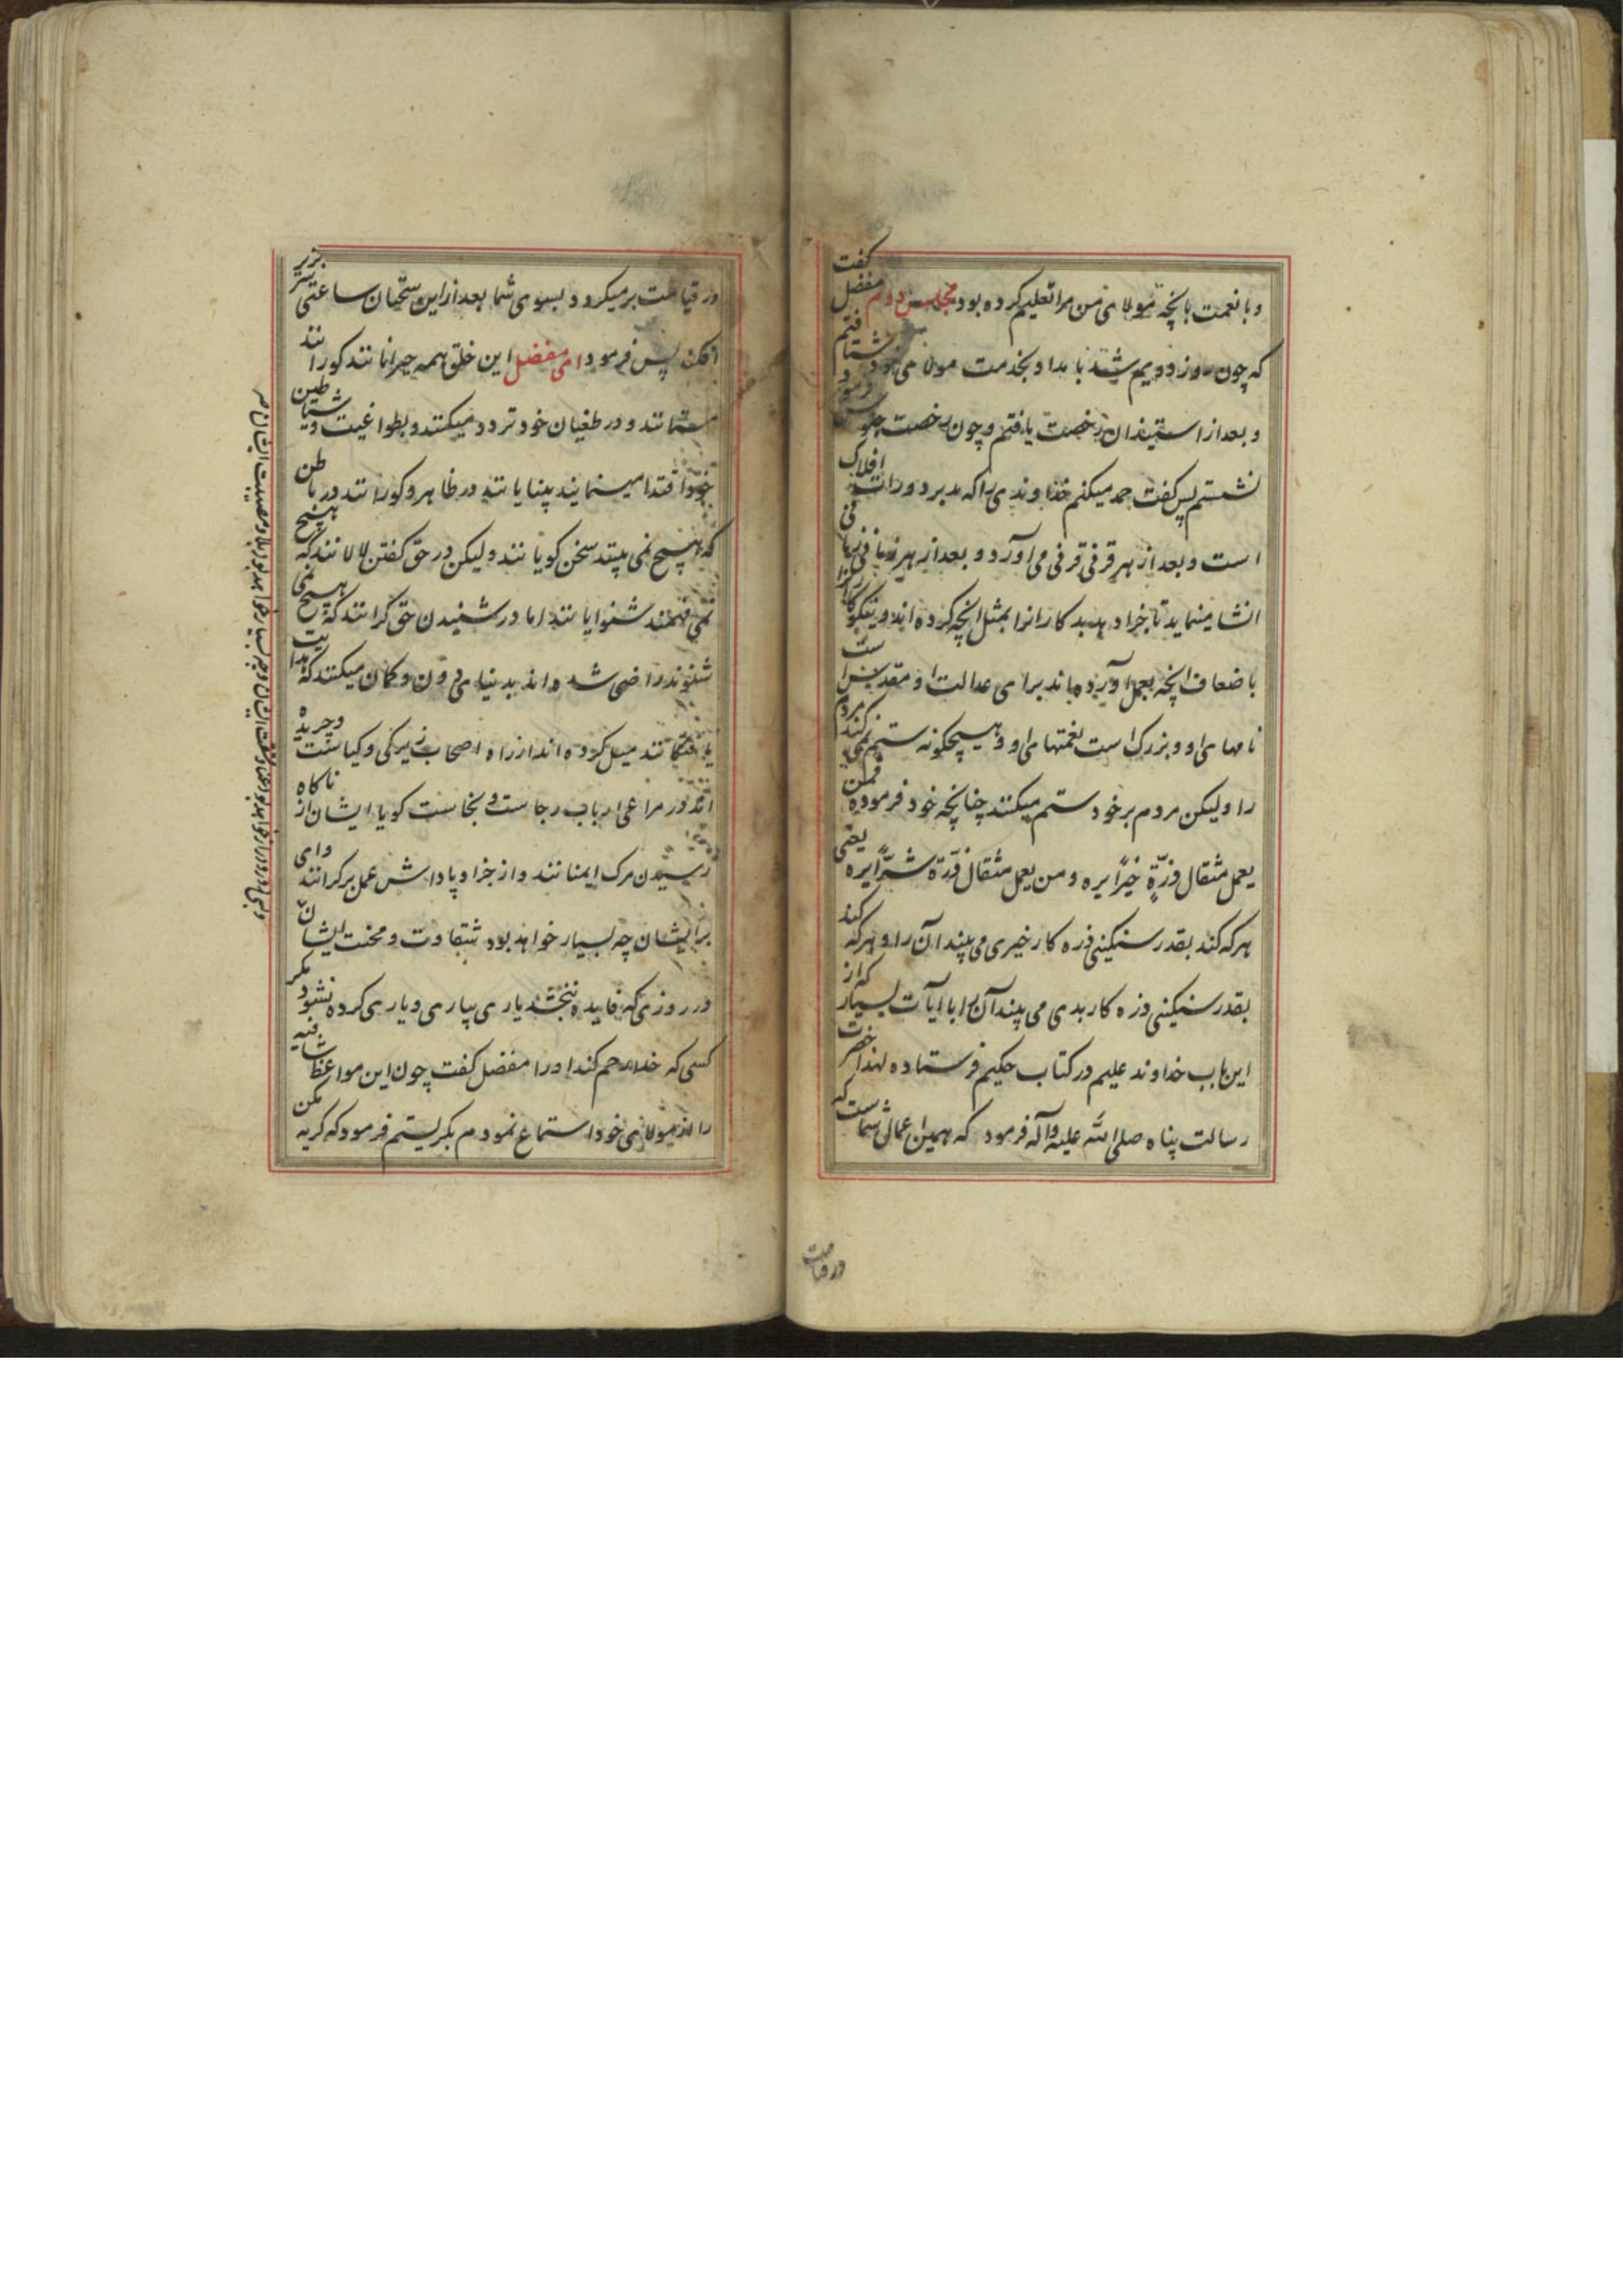 و با نعمت بانچه مولای من مرا تعلیم کرده بود مجلس دوم مفضل گفت
که چون روز دویم شد بامداد بخدمت مولای خود شتافتم
و بعد از استیذان رخصت یافتم و چون رخصت جلوس فرمود
نشستم پس گفت حمد میکنم خداوندی را که مدبر دورات افلاک
است و بعد از هر قرنی قرنی می آورد و بعد از هر زمانی زمانی
انشا مینماید تا جزا دهد بدکارانرا بمثل انچه کرده اند و نیکوکارانرا
باضعاف انچه بعمل آورده اند برای عدالت او مقدس است
نامهای او و بزرک است نعمتهای او و هیچکونه ستم نمی کند مردم
را ولیکن مردم بر خود ستم میکنند چنانچه خود فرموده فمن
یعمل مثقال ذرّةٍ خیرًا یره و من یعمل مثقال ذرّة شرًّا یره یعنی
هر که کند بقدر سنکینی ذره کار خیری می بیند آن را و هر که کند
بقدر سنکینی ذره کار بدی می بیند آن را با ایات بسیار که از
این باب خداوند علیم در کتاب حکیم فرستاده لهذا حضرت
رسالت پناه صلی الله علیه وآله فرمود که همین اعمال شماست که
در قیامت
در قیامت برمیکردد بسوی شما بعد از این سخنان ساعتی سر بزیر
افکند پس فرمود ای مفضل این خلق همه حیرانانند کورانند
مستانند و در طغیان خود تردد میکنند و بطواغیت و شیاطین
خود اقتدا مینمایند بینایانند در ظاهر و کورانند در باطن
که هیچ نمی بینند سخن کویانند ولیکن در حق کفتن لالانند که هیچ
نمی فهمند شنوایانند اما در شنیدن حق کرانند که هیچ نمی
شنوند راضی شده اند بدنیای دون و کمان میکنند که هدایت
یافتکانند میل کرده اند از راه اصحاب زیرکی و کیاست و چریده
اند در مراعی ارباب رجاست و نجاست کویا ایشان از ناکاه
رسیدن مرک ایمنانند و از جزا و پاداش عمل برکرانند وای
بر ایشان چه بسیار خواهد بود شقاوت و محنت ایشان
در روزی که فایده نبخشد یاری بیاری و یاری کرده نشود مکر
کسی که خدا رحم کند او را مفضل گفت چون این مواعظ شافیه
را از مولای خود استماع نمودم بکریستم فرمود که کریه مکن